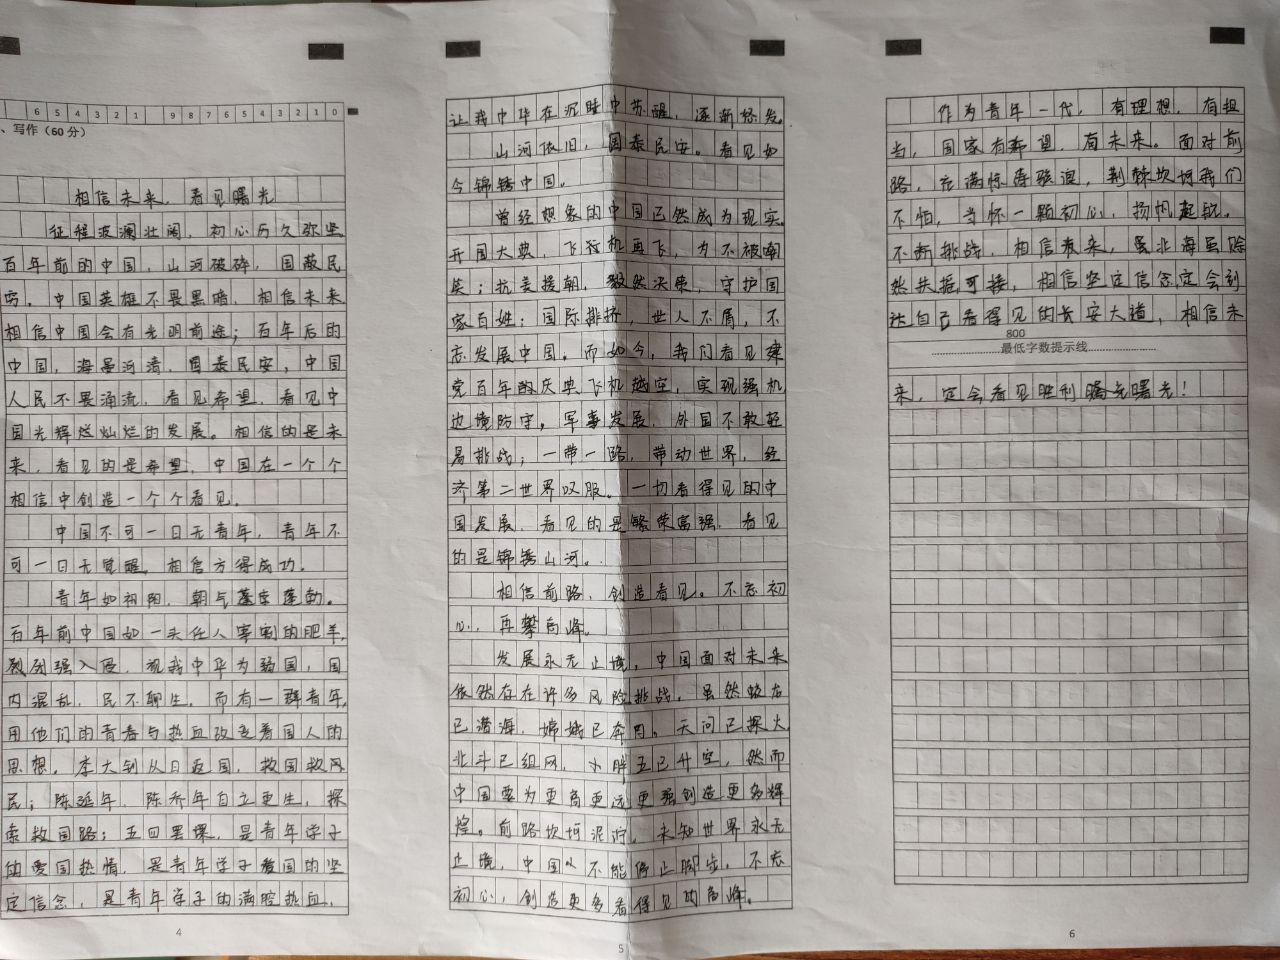 6 5 4 3 2 1 9 8 7 6 5 4 3 2 1 0
、写作（60 分）
相信未来，看见曙光
征程波澜壮阔，初心历久弥坚
百年前的中国，山河破碎，国敝民
穷。中国英雄不畏黑暗，相信未来
相信中国会有光明前途；百年后的
中国，海晏河清，国泰民安，中国
人民不畏涌流，看见希望，看见中
国光辉烂灿烂的发展。相信的是未
来，看见的是希望，中国在一个个
相信中创造一个个看见。
中国不可一日无青年，青年不
可一日无觉醒，相信方得成功。
青年如初阳，朝气蓬字蓬勃。
百年前中国如一头任人宰割的肥羊，
列强入侵，视我中华为弱国，国
内混乱，民不聊生。而有一群青年，
用他们的青春与热血改变着国人的
思想。李大钊从日返国，救国救风
民；陈延年、陈乔年自立更生，探
索救国路；五四罢课，是青年学子
的爱国热情，是青年学子爱国的坚
定信念，是青年学子的满腔热血，
4
让我中华在沉睡中苏醒，逐渐怒发。
山河依旧，国泰民安。看见如
今锦锈中国。
曾经想象的中国已然成为现实。
开国大典，飞行机再飞，为不被嘲
笑；抗美援朝，毅然决策，守护国
家百姓；国际排挤，世人不屑，不
忘发展中国。而如今，我们看见建
党百年的庆典飞机越空，实现强机
边境防守，军事发展，外国不敢轻
易挑战；一带一路，带动世界，经
济第二世界叹服。一切看得见的中
国发展，看见的是繁荣富强，看见
的是锦锈山河。
相信前路，创造看见。不忘初
心，再攀高峰。
发展永无止境，中国面对未来
依然存在许多风险挑战，虽然蛟龙
已潜海，嫦娥已奔月。天问已探火
北斗已组网，小胖五已升空，然而
中国要为更高更远更强创造更多辉
煌。前路坎坷泥泞，未知世界永无
止境，中国从不能停止脚步，不忘
初心，创造更多看得见的高峰。
5
作为青年一代，有理想，有担
当，国家有希望，有未来。面对前
路，充满惊涛骇浪，荆棘坎坷我们
不怕，当怀一颗初心，扬帆起航。
不断挑战，相信未来，虽北海虽赊
然扶摇可接，相信坚定信念定会到
达自己看得见的长安大道，相信未
800
最低字数提示线
来，定会看见胜利曙光曙光！
6